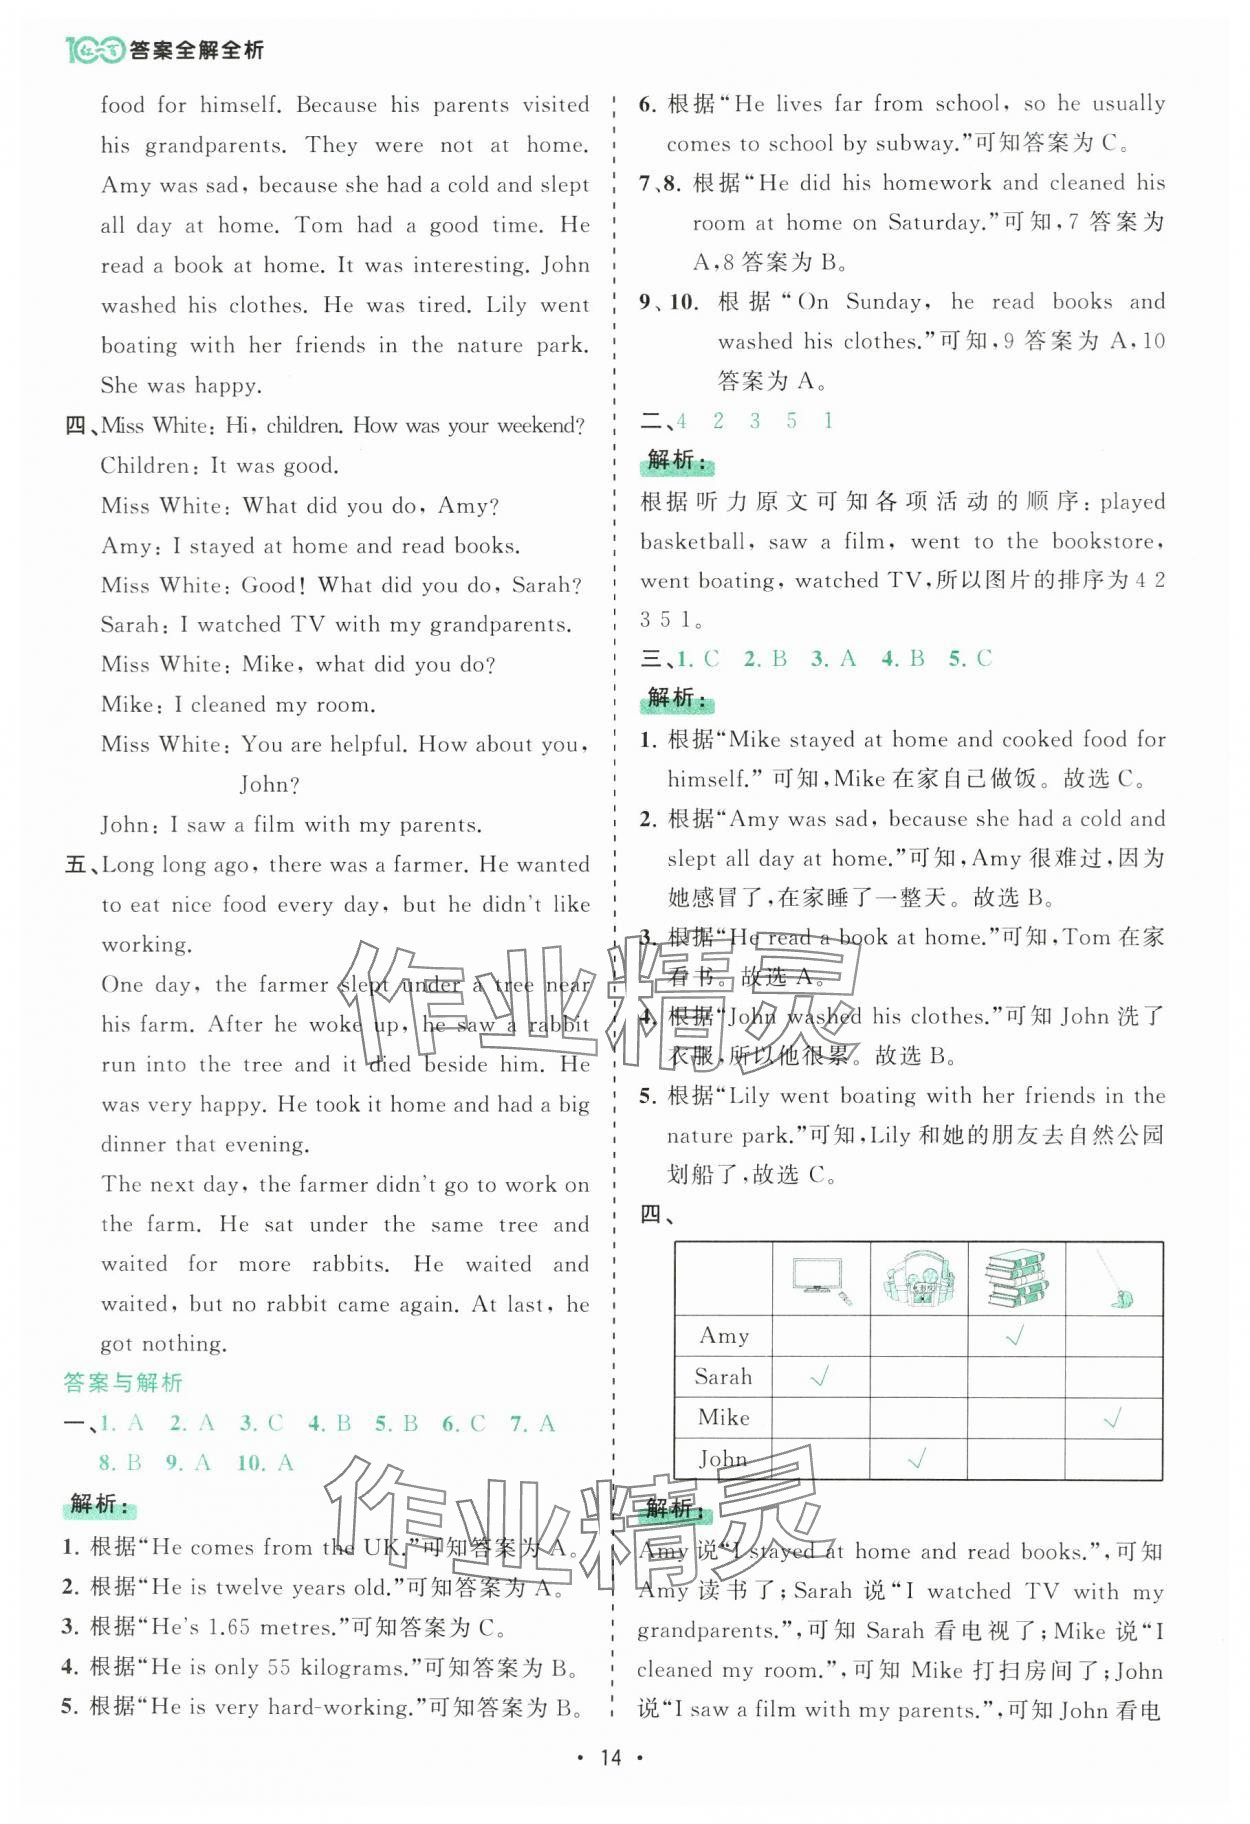 100 红一百 答案全解全析
food for himself. Because his parents visited
his grandparents. They were not at home.
Amy was sad, because she had a cold and slept
all day at home. Tom had a good time. He
read a book at home. It was interesting. John
washed his clothes. He was tired. Lily went
boating with her friends in the nature park.
She was happy.
四、Miss White: Hi, children. How was your weekend?
Children: It was good.
Miss White: What did you do, Amy?
Amy: I stayed at home and read books.
Miss White: Good! What did you do, Sarah?
Sarah: I watched TV with my grandparents.
Miss White: Mike, what did you do?
Mike: I cleaned my room.
Miss White: You are helpful. How about you,
John?
John: I saw a film with my parents.
五、Long long ago, there was a farmer. He wanted
to eat nice food every day, but he didn't like
working.
One day, the farmer slept under a tree near
his farm. After he woke up, he saw a rabbit
run into the tree and it died beside him. He
was very happy. He took it home and had a big
dinner that evening.
The next day, the farmer didn't go to work on
the farm. He sat under the same tree and
waited for more rabbits. He waited and
waited, but no rabbit came again. At last, he
got nothing.
答案与解析
一、1. A 2. A 3. C 4. B 5. B 6. C 7. A
8. B 9. A 10. A
解析:
1. 根据“He comes from the UK.”可知答案为 A。
2. 根据“He is twelve years old.”可知答案为 A。
3. 根据“He's 1.65 metres.”可知答案为 C。
4. 根据“He is only 55 kilograms.”可知答案为 B。
5. 根据“He is very hard-working.”可知答案为 B。
6. 根据“He lives far from school, so he usually
comes to school by subway.”可知答案为 C。
7、8. 根据“He did his homework and cleaned his
room at home on Saturday.”可知,7 答案为
A,8 答案为 B。
9、10. 根据“On Sunday, he read books and
washed his clothes.”可知,9 答案为 A,10
答案为 A。
二、4 2 3 5 1
解析:
根据听力原文可知各项活动的顺序: played
basketball, saw a film, went to the bookstore,
went boating, watched TV,所以图片的排序为 4 2
3 5 1。
三、1. C 2. B 3. A 4. B 5. C
解析:
1. 根据“Mike stayed at home and cooked food for
himself.” 可知,Mike 在家自己做饭。故选 C。
2. 根据“Amy was sad, because she had a cold and
slept all day at home.”可知,Amy 很难过,因为
她感冒了,在家睡了一整天。故选 B。
3. 根据“He read a book at home.”可知,Tom 在家
看书。故选 A。
4. 根据“John washed his clothes.”可知 John 洗了
衣服,所以他很累。故选 B。
5. 根据“Lily went boating with her friends in the
nature park.”可知,Lily 和她的朋友去自然公园
划船了,故选 C。
四、
Amy √
Sarah √
Mike √
John √
解析:
Amy 说“I stayed at home and read books.”,可知
Amy 读书了;Sarah 说“I watched TV with my
grandparents.”,可知 Sarah 看电视了;Mike 说“I
cleaned my room.”,可知 Mike 打扫房间了;John
说“I saw a film with my parents.”,可知 John 看电
• 14 •
作业精灵
作业精灵